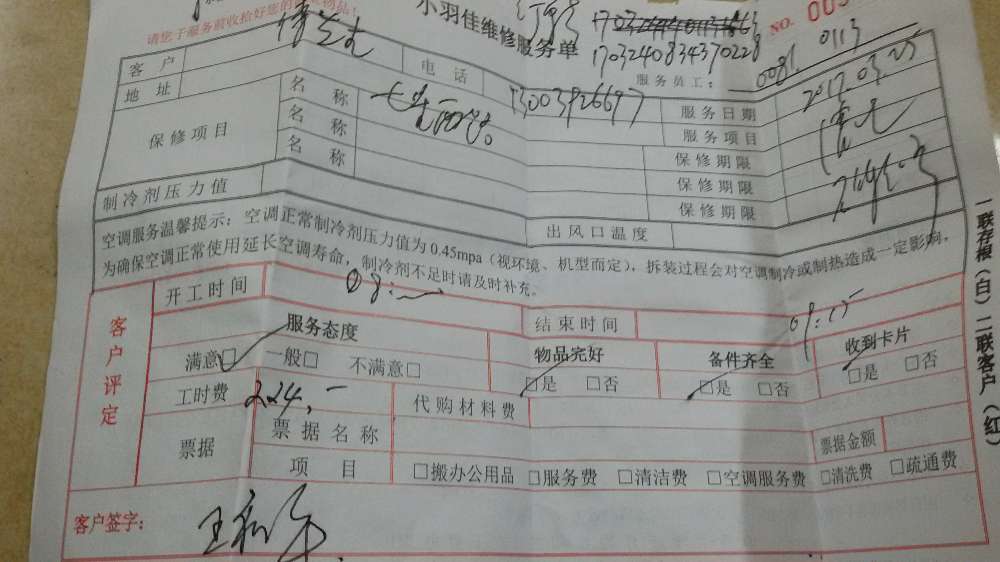 请您于服务前收拾好您的
小羽佳维修服务单
NO. 00
1703240834370228
服务员工： 0081 0113
客户
电话 13003926697
服务日期 2017.03.25
地址
服务项目
保修项目
名称
保修期限
名称
保修期限
名称
保修期限
制冷剂压力值
出风口温度
空调服务温馨提示：空调正常制冷剂压力值为0.45mpa（视环境、机型而定），拆装过程会对空调制冷或制热造成一定影响，
为确保空调正常使用延长空调寿命，制冷剂不足时请及时补充。
一联存根（白）二联客户（红）
客户评定
开工时间 08:
结束时间
服务态度
物品完好
备件齐全
收到卡片
满意□ 一般□ 不满意□
□是 □否
□是 □否
□是 □否
工时费 224,-
代购材料费
票据
票据名称
票据金额
项目 □搬办公用品 □服务费 □清洁费 □空调服务费 □清洗费 □疏通费
客户签字：